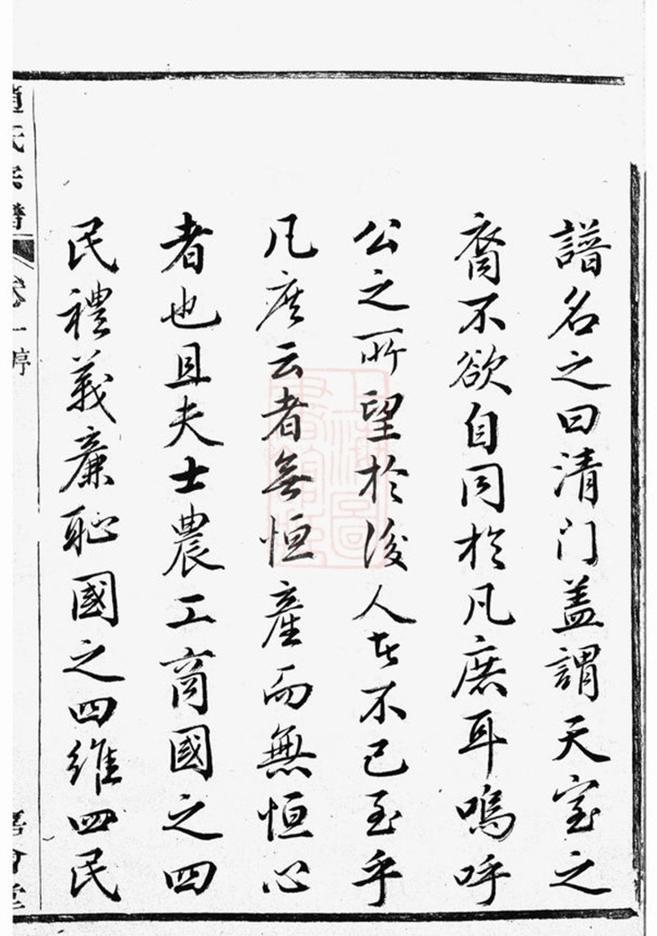 譜名之曰清门盖謂天室之
裔不欲自同於凡庶耳嗚呼
公之所望於後人者不已至乎
凡庶云者無恒產而無恒心
者也且夫士農工商國之四
民禮義廉恥國之四維四民
趙氏宗譜 卷一 序